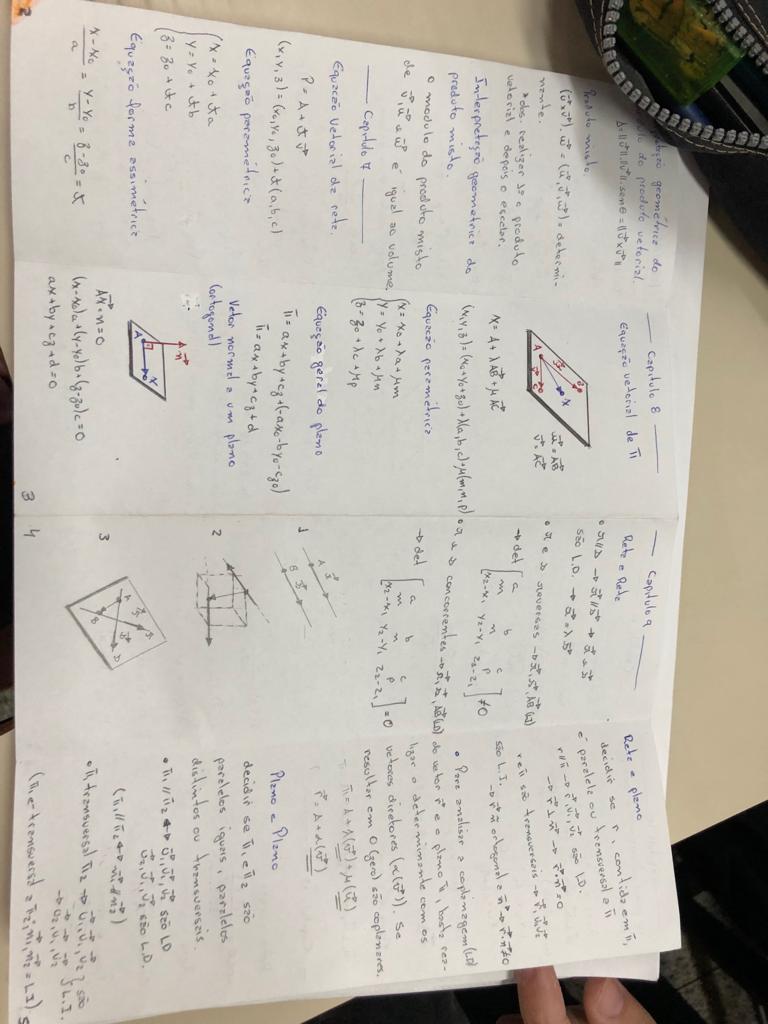 geométrica do
do produto vetorial
A = ||u||.||v||.senθ = ||u x v||
Produto misto
(u x v).w = (u,v,w) = determi-
nante.
* obs. realizar 1º o produto
vetorial e depois o escalar.
Interpretação geométrica do
produto misto.
O modulo do produto misto
de v, u e w é igual ao volume.
Capitulo 7
Equação Vetorial da reta.
P = A + t v
(x,y,z) = (x0,y0,z0) + t(a,b,c)
Equação paramétrica
x = x0 + ta
y = y0 + tb
z = z0 + tc
Equação forma assimétrica
x-x0/a = y-y0/b = z-z0/c = t
2
Capitulo 8
Equação vetorial de π
A
X
u = AB
v = AC
X = A + λAB + μAC
(x,y,z) = (x0+y0+z0) + λ(a,b,c) + μ(m,n,p)
Equação paramétrica
x = x0 + λa + μm
y = y0 + λb + μn
z = z0 + λc + μp
Equação geral do plano
π = ax + by + cz + (-ax0 - by0 - cz0)
π = ax + by + cz + d
Vetor normal a um plano
(ortogonal)
n
A
X
AX.n = 0
(x-x0)a + (y-y0)b + (z-z0)c = 0
ax + by + cz + d = 0
3
Capitulo 9
Reta e Reta
• r // s → r // s → r e s
são L.D. → r = λ s
• r e s reversas → r, s, AB (LI)
→ det [ a b c
m n p
x2-x1 y2-y1 z2-z1 ] ≠ 0
• r e s concorrentes → r, s, AB (LD)
→ det [ a b c
m n p
x2-x1 y2-y1 z2-z1 ] = 0
1
A
r
B
s
2
3
A
B
D
4
Reta e plano
decidir se r, contida em π,
é paralela ou transversal a π
r // π → r, v1, v2 são L.D.
→ r ⊥ n → r.n = 0
r e π são transversais → r, v1, v2
são L.I. → r ñ ortogonal a n → r.n ≠ 0
• Para analisar a coplanagem (LD)
do vetor r e o plano π, basta rea-
lizar o determinante com os
vetores diretores (α(v)). Se
resultar em 0 (zero) são coplanares.
π = A + λ(v) + μ(u)
r = A + α(v)
Plano e Plano
decidir se π1 e π2 são
paralelos iguais, paralelos
distintos ou transversais.
• π1 // π2 ↔ u1, v1, v2 são LD
u2, v1, v2 são L.D.
(π1 // π2 ↔ n1 // n2)
• π1 transversal π2 → u1, v1, v2 } são
→ u2, v1, v2 } L.I.
(π1 e transversal a π2, n1, n2 = L.I)
5